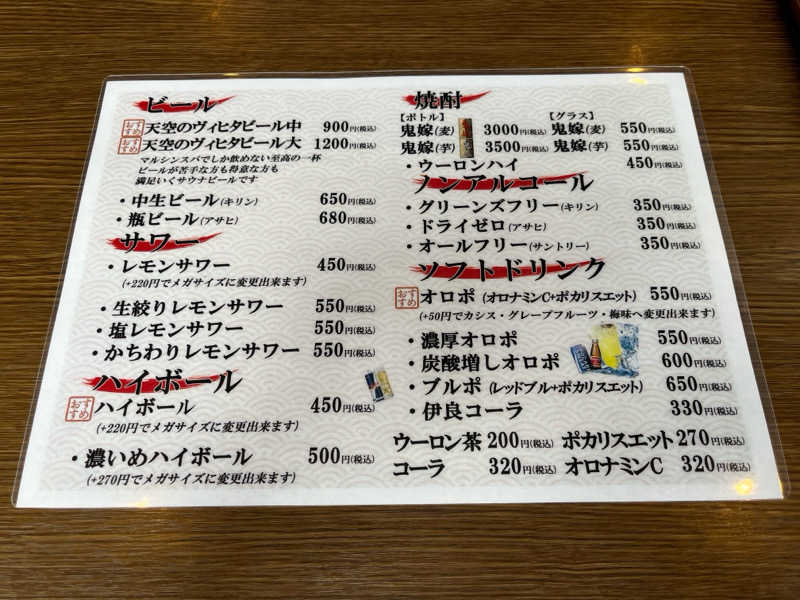 ビール
おすすめ 天空のヴィヒタビール中 900円(税込)
おすすめ 天空のヴィヒタビール大 1200円(税込)
マルシンスパでしか飲めない至高の一杯
ビールが苦手な方も得意な方も
満足いくサウナビールです
・中生ビール(キリン) 650円(税込)
・瓶ビール(アサヒ) 680円(税込)
サワー
・レモンサワー 450円(税込)
(+220円でメガサイズに変更出来ます)
・生絞りレモンサワー 550円(税込)
・塩レモンサワー 550円(税込)
・かちわりレモンサワー 550円(税込)
ハイボール
おすすめ ハイボール 450円(税込)
(+220円でメガサイズに変更出来ます)
・濃いめハイボール 500円(税込)
(+270円でメガサイズに変更出来ます)
焼酎
【ボトル】 【グラス】
鬼嫁(麦) 3000円(税込) 鬼嫁(麦) 550円(税込)
鬼嫁(芋) 3500円(税込) 鬼嫁(芋) 550円(税込)
・ウーロンハイ 450円(税込)
ノンアルコール
・グリーンズフリー(キリン) 350円(税込)
・ドライゼロ(アサヒ) 350円(税込)
・オールフリー(サントリー) 350円(税込)
ソフトドリンク
おすすめ オロポ(オロナミンC+ポカリスエット) 550円(税込)
(+50円でカシス・グレープフルーツ・梅味へ変更出来ます)
・濃厚オロポ 550円(税込)
・炭酸増しオロポ 600円(税込)
・ブルポ(レッドブル+ポカリスエット) 650円(税込)
・伊良コーラ 330円(税込)
ウーロン茶 200円(税込) ポカリスエット 270円(税込)
コーラ 320円(税込) オロナミンC 320円(税込)